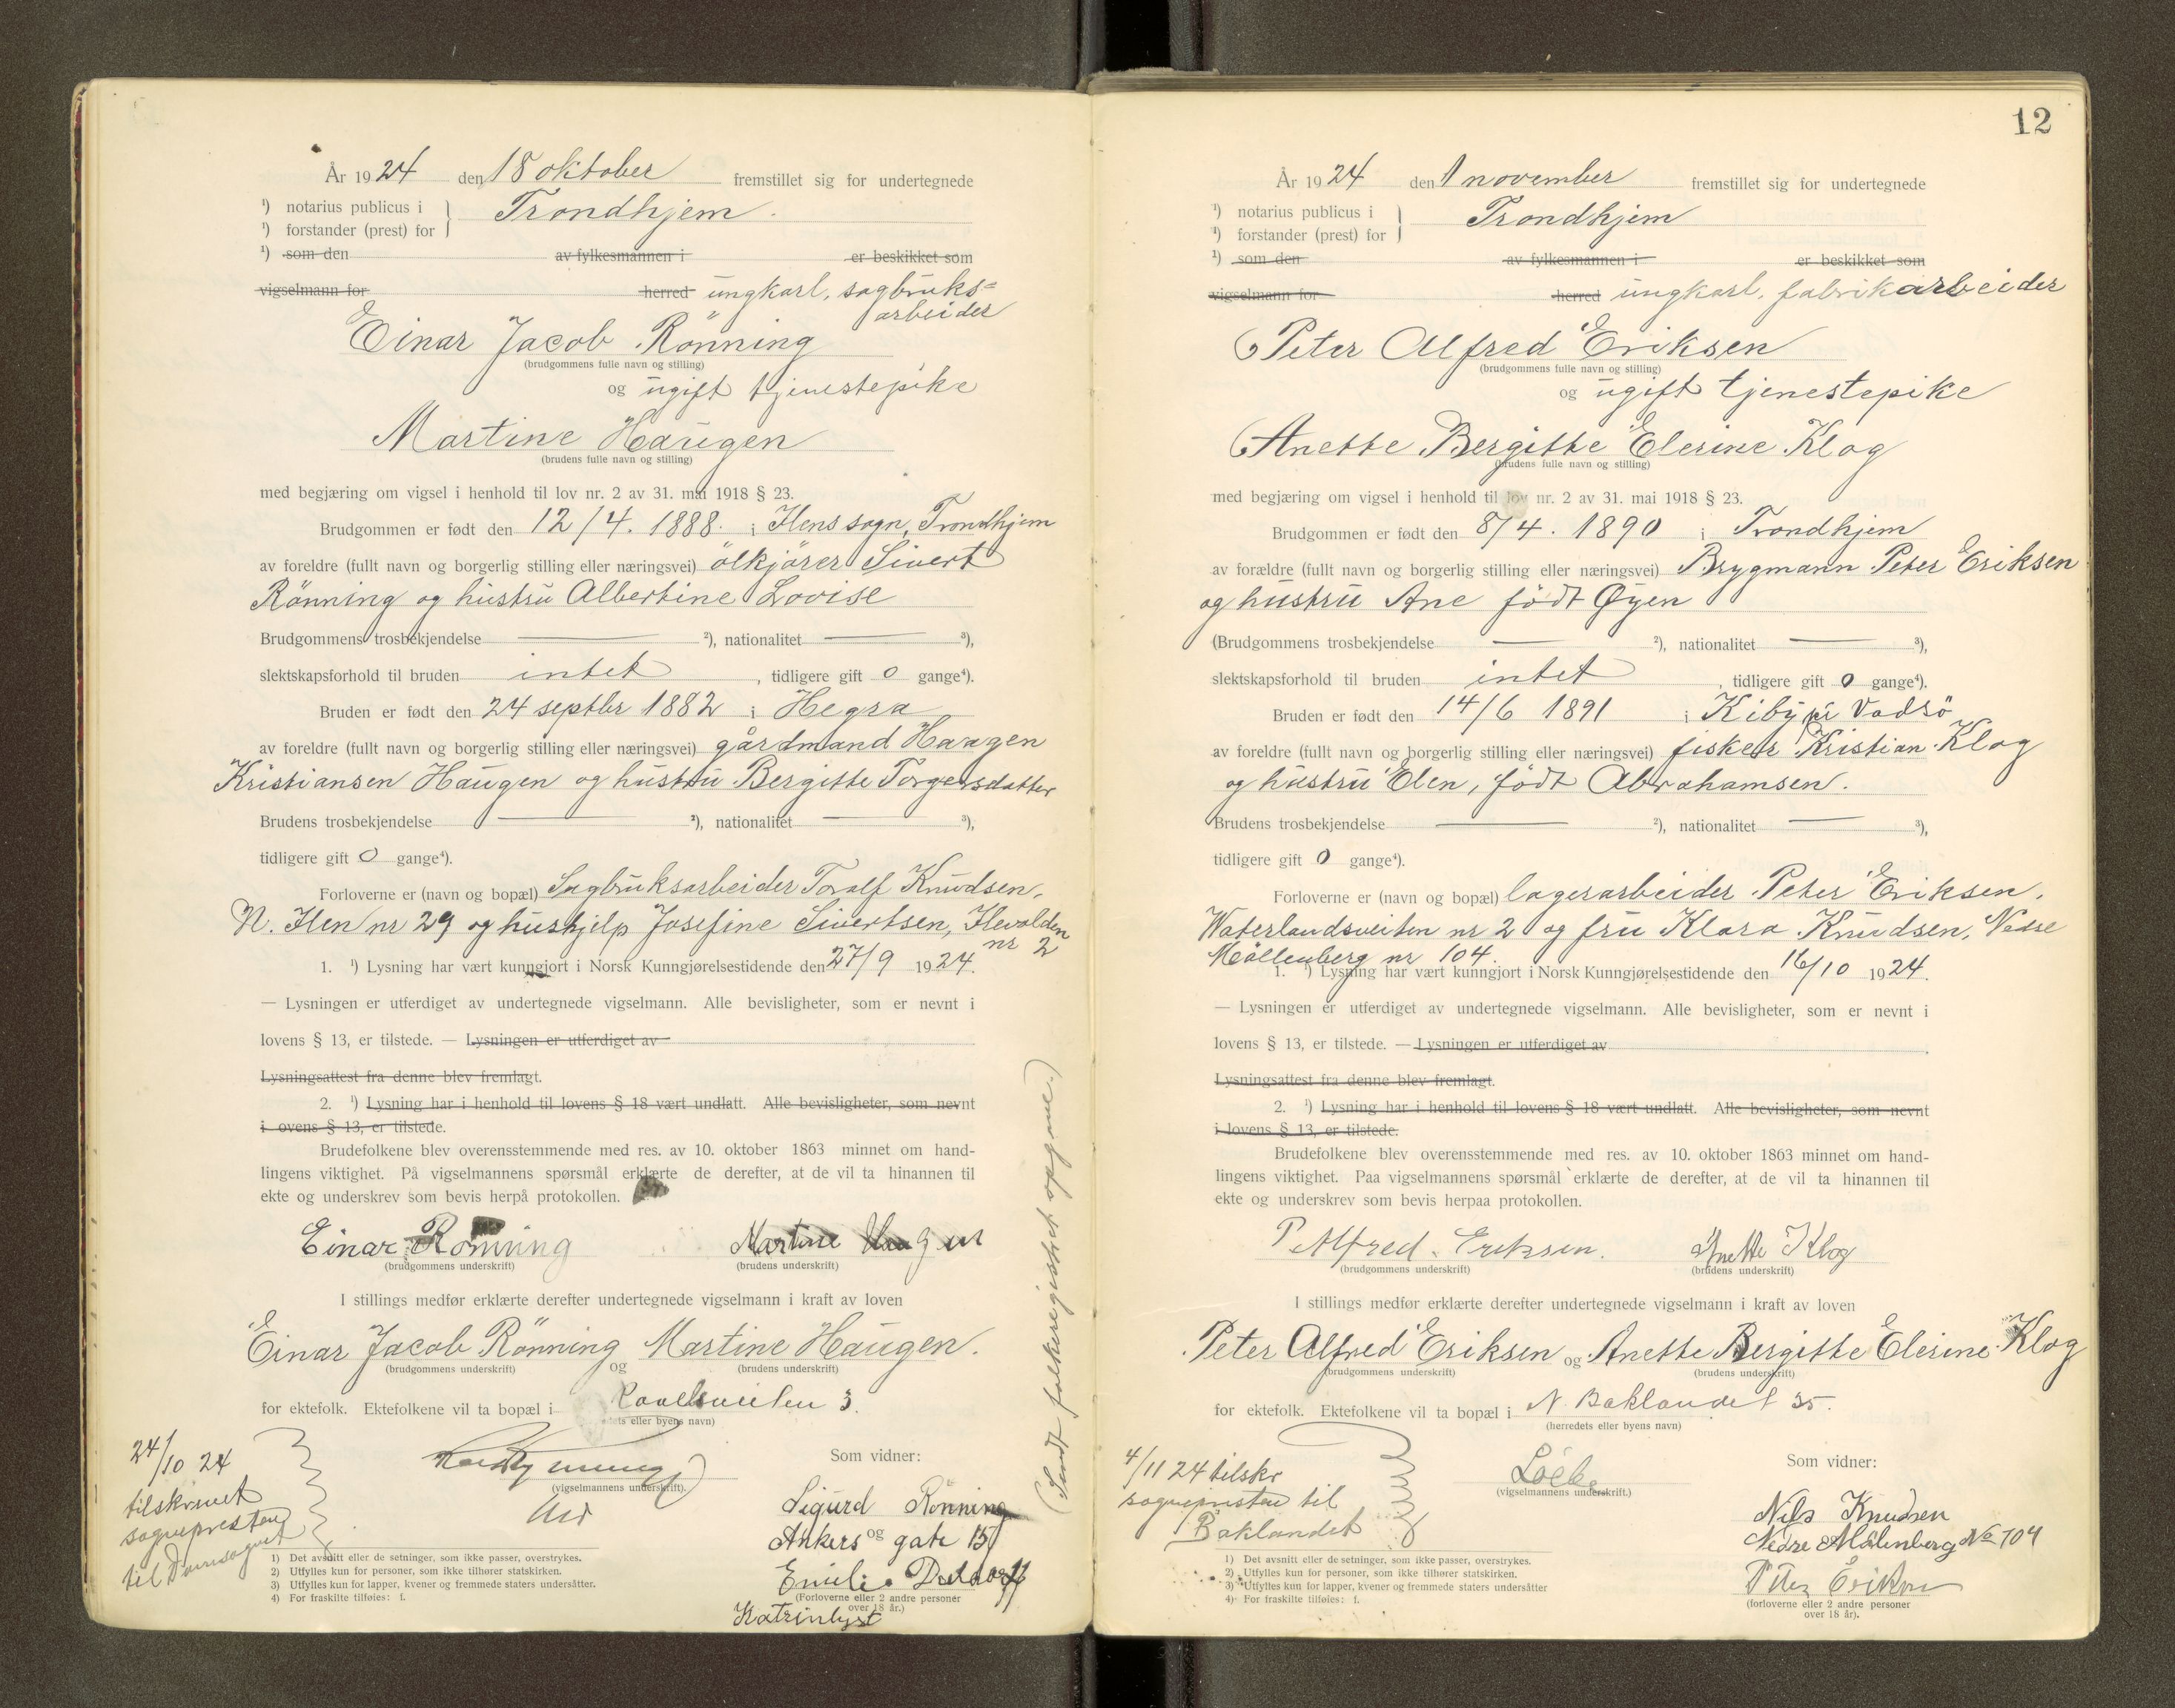 År 1924 den 18 oktober fremstillet sig for undertegnede
¹) notarius publicus i
¹) forstander (prest) for
Trondhjem.
¹) som den av fylkesmannen i er beskikket som
vigselmann for herred ungkarl, sagbruks=
arbeider
Einar Jacob Rönning
(brudgommens fulle navn og stilling)
og ugift tjenestepike
Martine Haugen
(brudens fulle navn og stilling)
med begjæring om vigsel i henhold til lov nr. 2 av 31. mai 1918 § 23.
Brudgommen er født den 12/4. 1888. i Ilens sogn, Trondhjem
av foreldre (fullt navn og borgerlig stilling eller næringsvei) ölkjörer Sivert
Rönning og hustru Albertine Lovise
Brudgommens trosbekjendelse — ²), nationalitet — ³),
slektskapsforhold til bruden intet, tidligere gift 0 gange⁴).
Bruden er født den 24 septbr 1882 i Hegra
av foreldre (fullt navn og borgerlig stilling eller næringsvei) gårdmand Haagen
Kristiansen Haugen og hustru Bergitte Torgersdatter
Brudens trosbekjendelse — ²), nationalitet — ³),
tidligere gift 0 gange⁴).
Forloverne er (navn og bopæl) Sagbruksarbeider Toralf Knudsen,
N. Ilen nr 29 og hushjelp Josefine Sivertsen, Ilevolden
nr 2
1. ¹) Lysning har vært kunngjort i Norsk Kunngjørelsestidende den 27/9 1924.
— Lysningen er utferdiget av undertegnede vigselmann. Alle bevisligheter, som er nevnt i
lovens § 13, er tilstede. — Lysningen er utferdiget av
Lysningsattest fra denne blev fremlagt.
2. ¹) Lysning har i henhold til lovens § 18 vært undlatt. Alle bevisligheter, som nevnt
i ovens § 13, er tilstede.
Brudefolkene blev overensstemmende med res. av 10. oktober 1863 minnet om hand-
lingens viktighet. På vigselmannens spørsmål erklærte de derefter, at de vil ta hinannen til
ekte og underskrev som bevis herpå protokollen.
Einar Rönning Martine Haugen
(brudgommens underskrift) (brudens underskrift)
I stillings medfør erklærte derefter undertegnede vigselmann i kraft av loven
Einar Jacob Rönning og Martine Haugen.
(brudgommens underskrift) (brudens underskrift)
for ektefolk. Ektefolkene vil ta bopæl i 3.
eller byens navn)
24/10 24
tilskrevet
sognepresten
til Domsognet
(vigselmannens underskrift).
Som vidner:
Sigurd Rönning
Ankers gate 15
og
Emilie
(Forloverne eller 2 andre personer
over 18 år.)
Katrinlyst
1) Det avsnitt eller de setninger, som ikke passer, overstrykes.
2) Utfylles kun for personer, som ikke tilhører statskirken.
3) Utfylles kun for lapper, kvener og fremmede staters undersåtter.
4) For fraskilte tilføies: f.
(Sendt folkeregistret opgave.)
12
År 1924 den 1 november fremstillet sig for undertegnede
¹) notarius publicus i
¹) forstander (prest) for
Trondhjem
¹) som den av fylkesmannen i er beskikket som
vigselmann for herred ungkarl, fabrikarbeider
Peter Alfred Eriksen
(brudgommens fulle navn og stilling)
og ugift tjenestepike
Anette Bergitte Elerine Klog
(brudens fulle navn og stilling)
med begjæring om vigsel i henhold til lov nr. 2 av 31. mai 1918 § 23.
Brudgommen er født den 8/4. 1890 i Trondhjem
av forældre (fullt navn og borgerlig stilling eller næringsvei) Brygmann Peter Eriksen
og hustru Ane født Øyen
(Brudgommens trosbekjendelse — ²), nationalitet — ³),
slektskapsforhold til bruden intet, tidligere gift 0 gange⁴).
Bruden er født den 14/6 1891 i Kiby i Vadsö
av foreldre (fullt navn og borgerlig stilling eller næringsvei) fisker Kristian Klog
og hustru Elen, født Abrahamsen.
Brudens trosbekjendelse — ²), nationalitet — ³),
tidligere gift 0 gange⁴).
Forloverne er (navn og bopæl) lagerarbeider Peter Eriksen,
Waterlandsveiten nr 2 og fru Klara Knudsen, Nedre
Möllenberg nr 104.
1. ¹) Lysning har vært kunngjort i Norsk Kunngjørelsestidende den 16/10 1924.
— Lysningen er utferdiget av undertegnede vigselmann. Alle bevisligheter, som er nevnt i
lovens § 13, er tilstede. — Lysningen er utferdiget av
Lysningsattest fra denne blev fremlagt.
2. ¹) Lysning har i henhold til lovens § 18 vært undlatt. Alle bevisligheter, som nevnt
i lovens § 13, er tilstede.
Brudefolkene blev overensstemmende med res. av 10. oktober 1863 minnet om hand-
lingens viktighet. Paa vigselmannens spørsmål erklærte de derefter, at de vil ta hinannen til
ekte og underskrev som bevis herpaa protokollen.
P Alfred. Eriksen. Anette Klog
(brudgommens underskrift) (brudens underskrift)
I stillings medfør erklærte derefter undertegnede vigselmann i kraft av loven
Peter Alfred Eriksen og Anette Bergitte Elerine Klog
(brudgommens underskrift) (brudens underskrift)
for ektefolk. Ektefolkene vil ta bopæl i N. Baklandet 35.
(herredets eller byens navn)
4/11 24 tilskr
sognepresten til
Baklandet
(vigselmannens underskrift.)
Som vidner:
Nils Knudsen
Nedre Mölenberg No 104
Peter Eriksen
(forloverne eller 2 andre personer
over 18 år).
1) Det avsnitt eller de setninger, som ikke passer, overstrykes.
2) Utfylles kun for personer, som ikke tilhører statskirken.
3) Utfylles kun for lapper, kvener og fremmede staters undersåtter
4) For fraskilte tilføies: f.